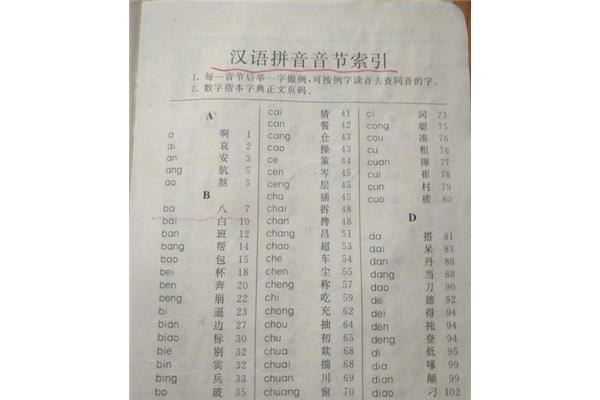 汉语拼音音节索引
1. 每一音节后举一字做例,可按例字读音去查同音的字。
2. 数字指本字典正文页码。
A
a 啊 1
ai 哀 2
an 安 3
ang 肮 5
ao 熬 5
B
ba 八 7
bai 白 10
ban 班 12
bang 帮 14
bao 包 15
bei 杯 18
ben 奔 20
beng 崩 22
bi 逼 23
bian 边 27
biao 标 30
bie 别 32
bin 宾 32
bing 兵 33
bo 玻 35
cai 猜 41
can 餐 42
cang 仓 43
cao 操 43
ce 策 44
cen 岑 45
ceng 层 45
cha 插 45
chai 拆 48
chan 搀 48
chang 昌 51
chao 超 53
che 车 54
chen 尘 55
cheng 称 57
chi 吃 59
chong 充 62
chou 抽 64
chu 初 65
chua 欻 68
chuai 揣 68
chuan 川 69
chuang 窗 70
ci 词 73
cong 聪 75
cou 凑 76
cu 粗 76
cuan 撺 77
cui 崔 78
cun 村 79
cuo 搓 80
D
da 搭 81
dai 呆 83
dan 丹 86
dang 当 88
dao 刀 90
de 德 92
dei 得 94
den 扽 94
deng 登 94
di 低 95
dia 嗲 99
dian 颠 99
diao 刁 102